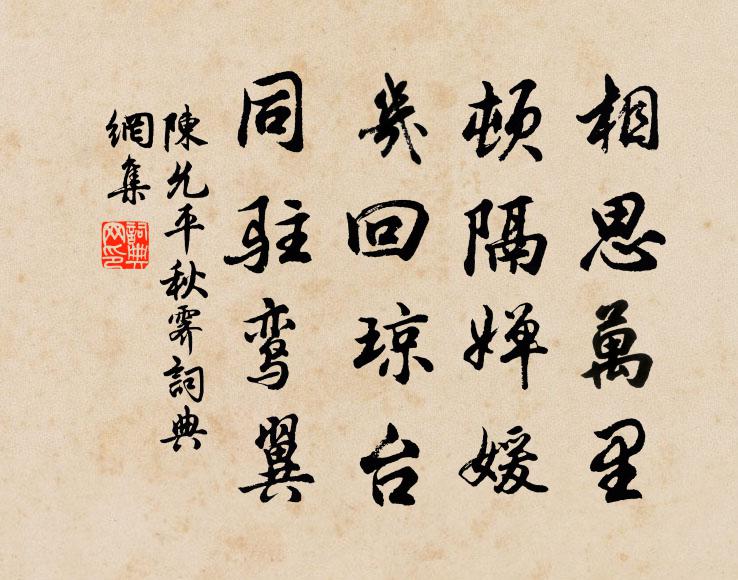 相思萬里
頓隔嬋媛
幾回琼台
同驻鸾翼
陳允平秋霽詞典
網集
詞典
网印